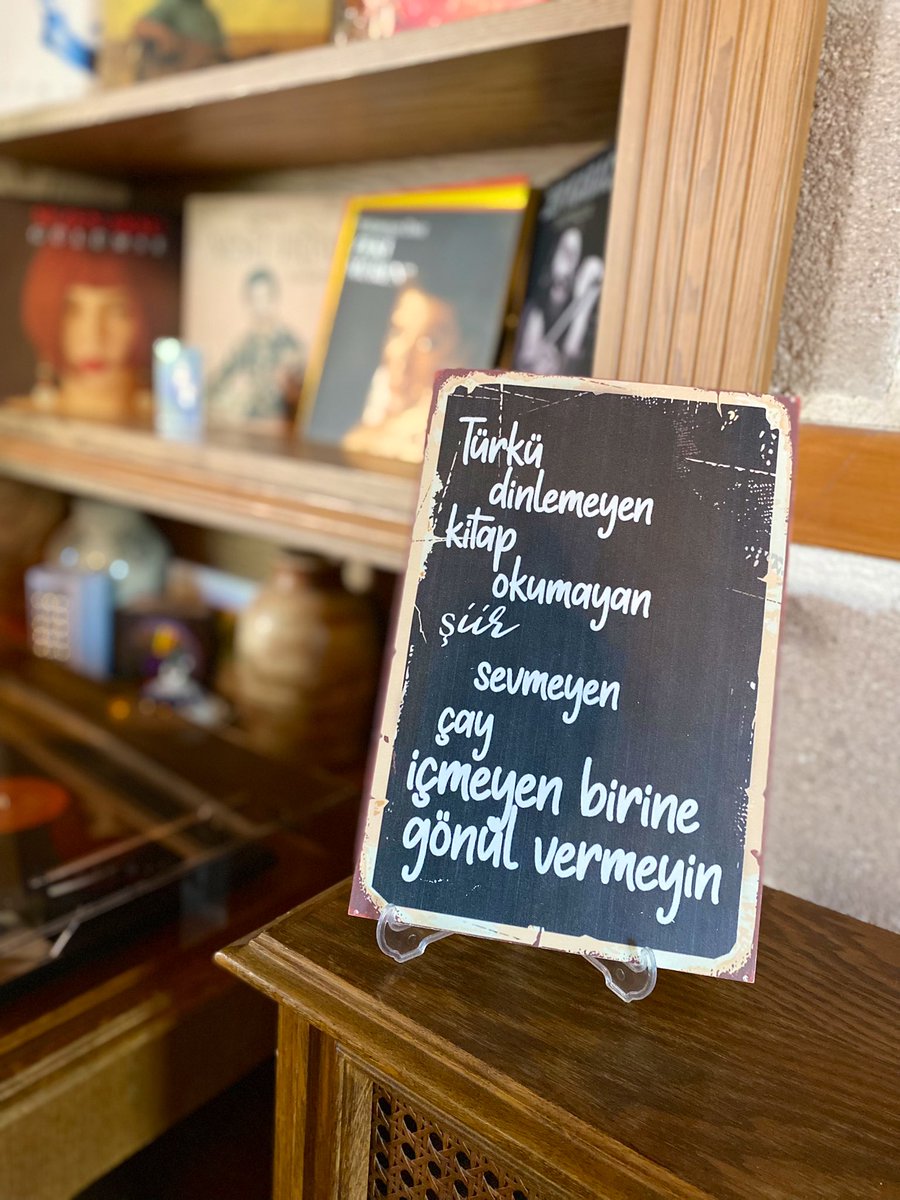 Türkü
dinlemeyen
kitap
okumayan
şiir
sevmeyen
çay
içmeyen birine
gönül vermeyin